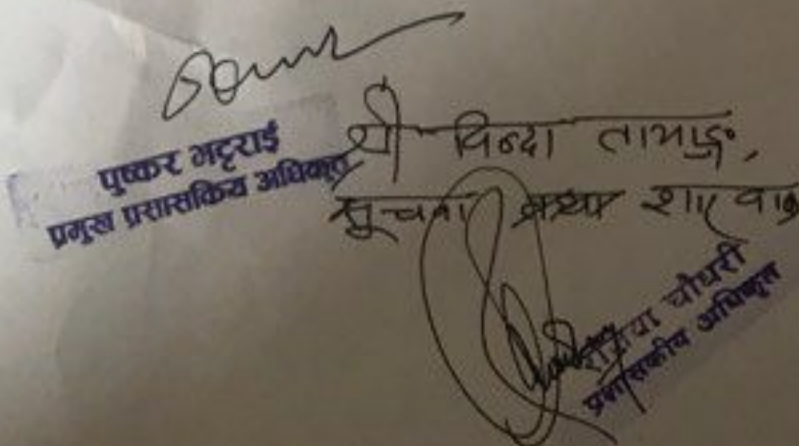 पुष्कर भट्टराई
प्रमुख प्रशासकिय अधिकृत
श्री विन्दा तामाङ,
सूचना शाखा
चौधरी
प्रशासकीय अधिकृत